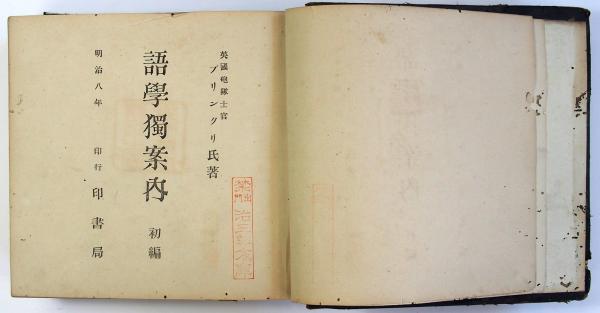 英國砲隊士官
ブリンクリ氏著
語學獨案內 初編
明治八年 印行 印書局